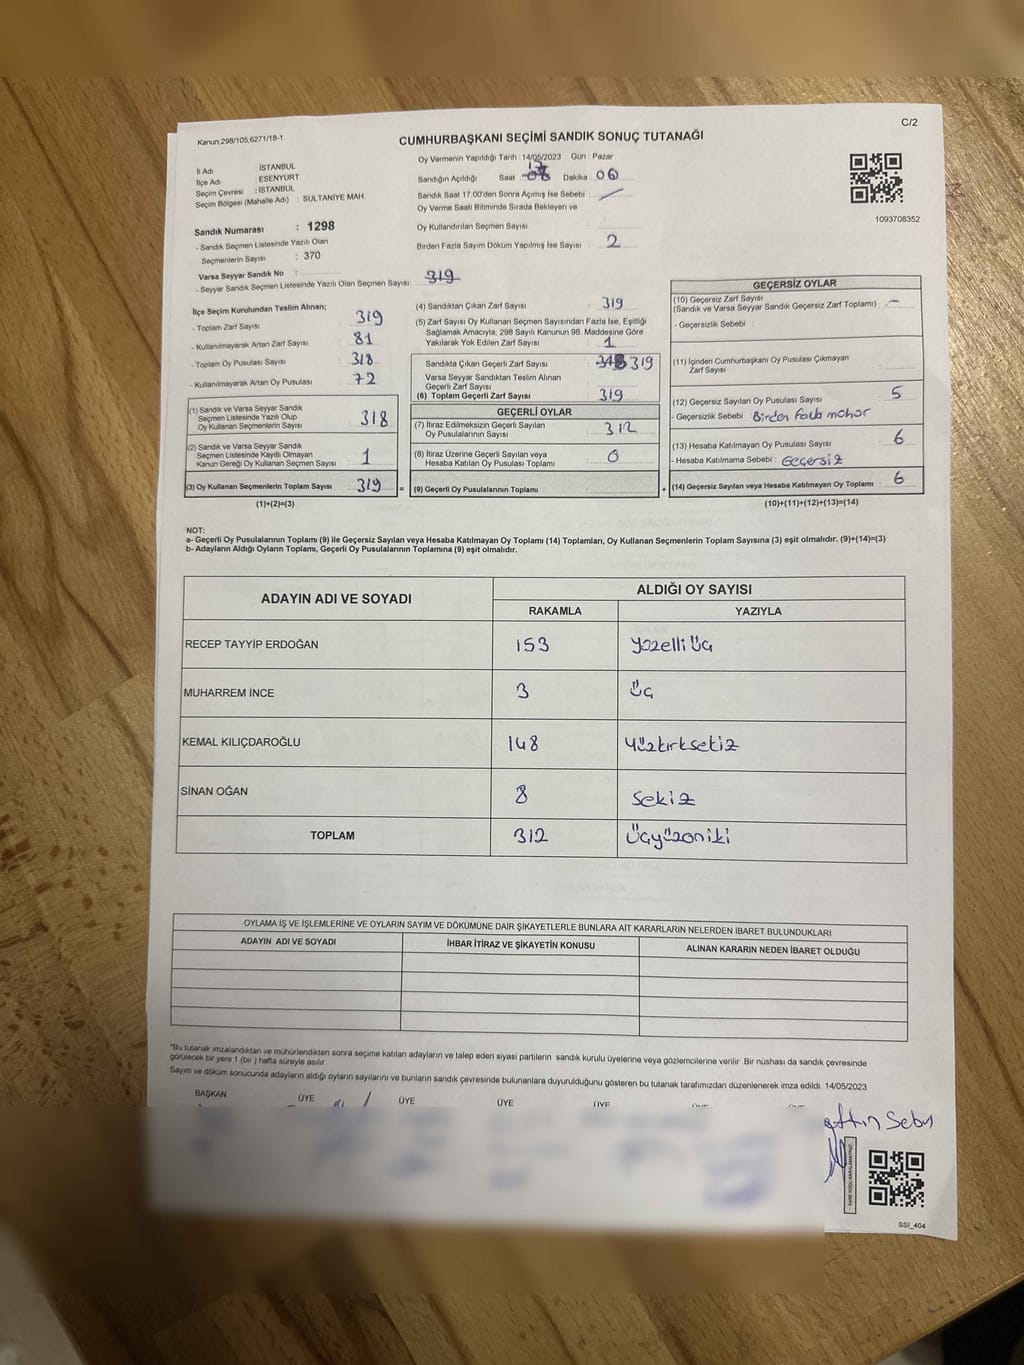 C/2
Kanun,298/105,6271/18-1
CUMHURBAŞKANI SEÇİMİ SANDIK SONUÇ TUTANAĞI
1093708352
İl Adı : İSTANBUL
İlçe Adı : ESENYURT
Seçim Çevresi : İSTANBUL
Seçim Bölgesi (Mahalle Adı) : SULTANİYE MAH.
Sandık Numarası : 1298
- Sandık Seçmen Listesinde Yazılı Olan
Seçmenlerin Sayısı : 370
Varsa Seyyar Sandık No :
- Seyyar Sandık Seçmen Listesinde Yazılı Olan Seçmen Sayısı: 319
Oy Vermenin Yapıldığı Tarih : 14/05/2023 Gün : Pazar
Sandığın Açıldığı Saat 17 Dakika : 06
Sandık Saat 17.00'den Sonra Açımış İse Sebebi :
Oy Verme Saati Bitiminde Sırada Bekleyen ve
Oy Kullandırılan Seçmen Sayısı :
Birden Fazla Sayım Döküm Yapılmış İse Sayısı : 2
İlçe Seçim Kurulundan Teslim Alınan;
- Toplam Zarf Sayısı : 319
- Kullanılmayarak Artan Zarf Sayısı : 81
- Toplam Oy Pusulası Sayısı : 318
- Kullanılmayarak Artan Oy Pusulası : 72
(1) Sandık ve Varsa Seyyar Sandık
Seçmen Listesinde Yazılı Olup
Oy Kullanan Seçmenlerin Sayısı : 318
(2) Sandık ve Varsa Seyyar Sandık
Seçmen Listesinde Kayıtlı Olmayan
Kanun Gereği Oy Kullanan Seçmen Sayısı : 1
(3) Oy Kullanan Seçmenlerin Toplam Sayısı : 319 =
(1)+(2)=(3)
(4) Sandıktan Çıkan Zarf Sayısı : 319
(5) Zarf Sayısı Oy Kullanan Seçmen Sayısından Fazla İse, Eşitliği
Sağlamak Amacıyla, 298 Sayılı Kanunun 98. Maddesine Göre
Yakılarak Yok Edilen Zarf Sayısı : 1
Sandıkta Çıkan Geçerli Zarf Sayısı : 318 319
Varsa Seyyar Sandıktan Teslim Alınan
Geçerli Zarf Sayısı :
(6) Toplam Geçerli Zarf Sayısı : 319
GEÇERLİ OYLAR
(7) İtiraz Edilmeksizin Geçerli Sayılan
Oy Pusulalarının Sayısı : 312
(8) İtiraz Üzerine Geçerli Sayılan veya
Hesaba Katılan Oy Pusulası Toplamı : 0
(9) Geçerli Oy Pusulalarının Toplamı : +
GEÇERSİZ OYLAR
(10) Geçersiz Zarf Sayısı
(Sandık ve Varsa Seyyar Sandık Geçersiz Zarf Toplamı) : -
- Geçersizlik Sebebi :
(11) İçinden Cumhurbaşkanı Oy Pusulası Çıkmayan
Zarf Sayısı :
(12) Geçersiz Sayılan Oy Pusulası Sayısı : 5
- Geçersizlik Sebebi : Birden fazla mohor
(13) Hesaba Katılmayan Oy Pusulası Sayısı : 6
- Hesaba Katılmama Sebebi : Geçersiz
(14) Geçersiz Sayılan veya Hesaba Katılmayan Oy Toplamı : 6
(10)+(11)+(12)+(13)=(14)
NOT:
a- Geçerli Oy Pusulalarının Toplamı (9) ile Geçersiz Sayılan veya Hesaba Katılmayan Oy Toplamı (14) Toplamları, Oy Kullanan Seçmenlerin Toplam Sayısına (3) eşit olmalıdır. (9)+(14)=(3)
b- Adayların Aldığı Oyların Toplamı, Geçerli Oy Pusulalarının Toplamına (9) eşit olmalıdır.
ADAYIN ADI VE SOYADI
ALDIĞI OY SAYISI
RAKAMLA YAZIYLA
RECEP TAYYİP ERDOĞAN 153 yözelli üç
MUHARREM İNCE 3 üç
KEMAL KILIÇDAROĞLU 148 yüzkırksekiz
SİNAN OĞAN 8 sekiz
TOPLAM 312 üçyüzoniki
OYLAMA İŞ VE İŞLEMLERİNE VE OYLARIN SAYIM VE DÖKÜMÜNE DAİR ŞİKAYETLERLE BUNLARA AİT KARARLARIN NELERDEN İBARET BULUNDUKLARI
ADAYIN ADI VE SOYADI İHBAR İTİRAZ VE ŞİKAYETİN KONUSU ALINAN KARARIN NEDEN İBARET OLDUĞU
"Bu tutanak imzalandıktan ve mühürlendikten sonra seçime katılan adayların ve talep eden siyasi partilerin sandık kurulu üyelerine veya gözlemcilerine verilir. Bir nüshası da sandık çevresinde
görülecek bir yere 1 (bir ) hafta süreyle asılır.
Sayım ve döküm sonucunda adayların aldığı oyların sayılarını ve bunların sandık çevresinde bulunanlara duyurulduğunu gösteren bu tutanak tarafımızdan düzenlenerek imza edildi. 14/05/2023
BAŞKAN ÜYE ÜYE ÜYE ÜYE
SSİ_404